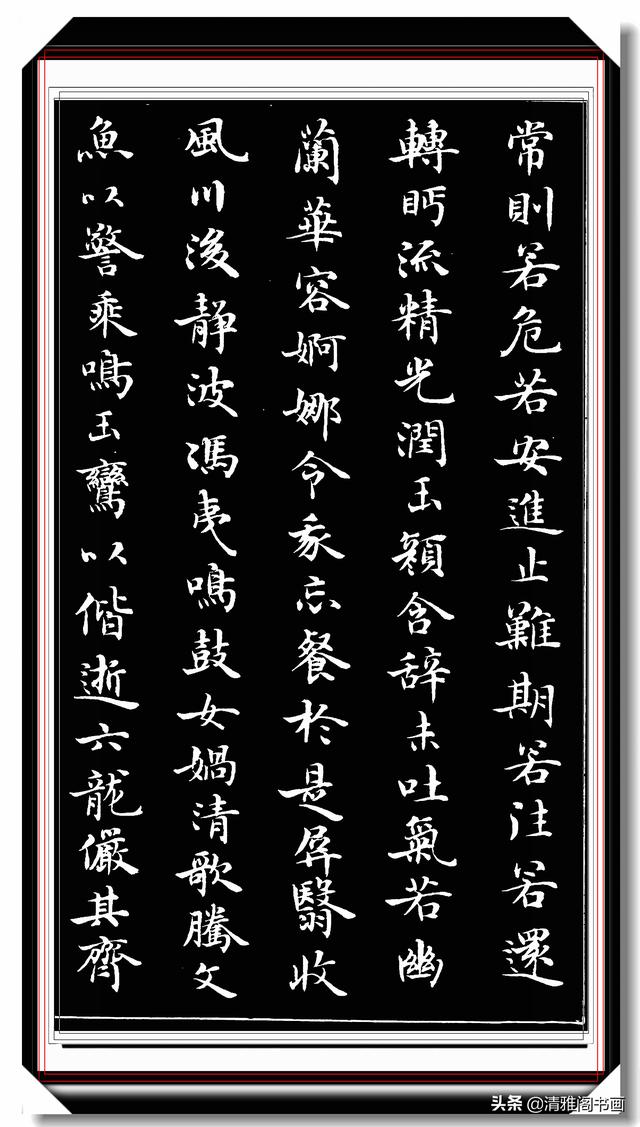 常則若危若安進止難期若注若還
轉眄流精光潤玉顏含辞未吐氣若幽
蘭華容婀娜令我忘餐於是屏翳收
風川後靜波馮夷鳴鼓女媧清歌騰文
魚以警乘鳴玉鸞以偕逝六龍儼其齊
头条 @清雅阁书画